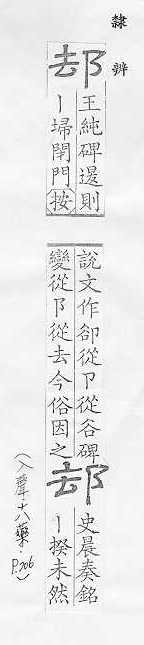 隸辨
𨚫
王純碑退則
丨埽閇門按
說文作卻從卩從谷碑
變從阝從去今俗因之
𨚫
史晨奏銘
丨揆未然
(入聲·十八藥·P.706)